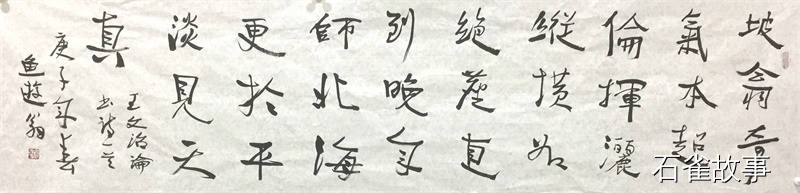 坡翁奇
氣本超
倫揮灑
縱横欲
絕塵直
到晚年
師北海
更於平
淡見天
真
王文治論
書詩一首
庚子年春
魚遊翁
石雀故事